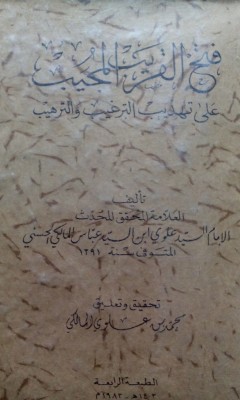 فتح القريب المجيب
على تهذيب الترغيب والترهيب
تأليف
العلامة المحقق المحدث
الإمام السيد علوي ابن السيد عباس المالكي الحسني
المتوفى سنة ١٣٩١
تحقيق وتعليق
محمد بن علوي المالكي
الطبعة الرابعة
١٤٠٣هـ ١٩٨٣م